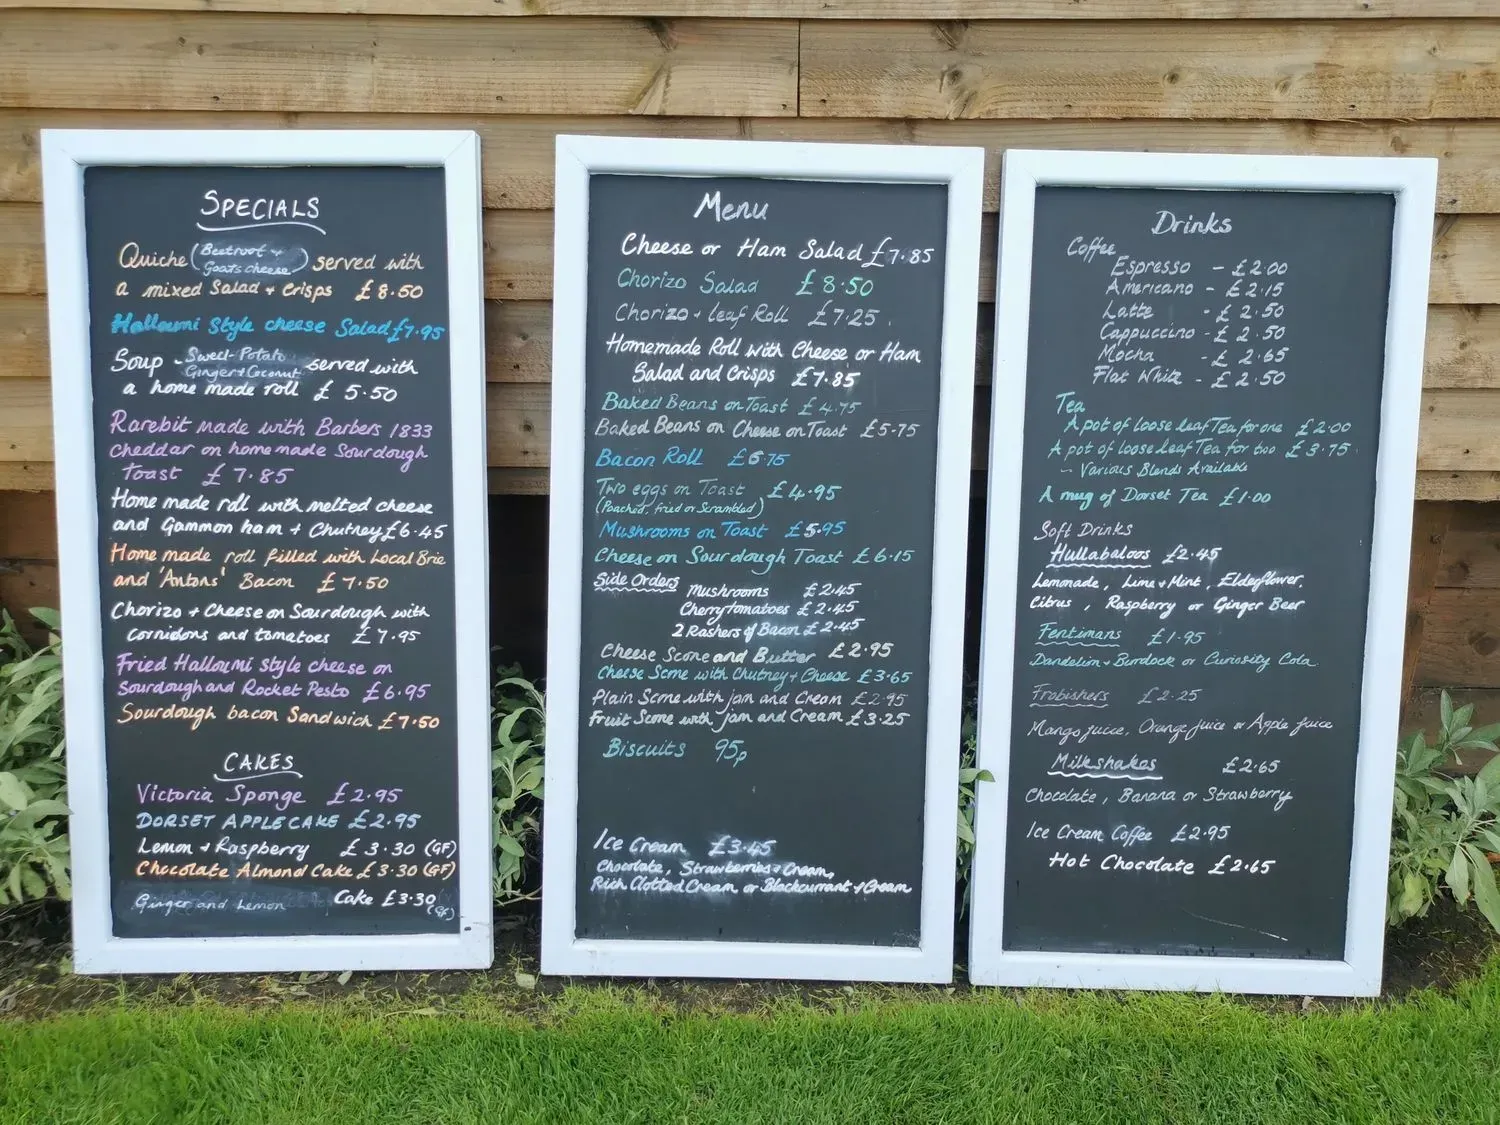 SPECIALS
Quiche (Beetroot + Goats cheese) served with
a mixed Salad + Crisps £8.50
Halloumi Style cheese Salad £7.95
Soup - Sweet Potato Ginger + Coconut served with
a home made roll £5.50
Rarebit made with Barbers 1833
Cheddar on home made Sourdough
Toast £7.85
Home made roll with melted cheese
and Gammon ham + Chutney £6.45
Home made roll filled with Local Brie
and 'Antons' Bacon £7.50
Chorizo + Cheese on Sourdough with
cornidons and tomatoes £7.95
Fried Halloumi Style cheese on
Sourdough and Rocket Pesto £6.95
Sourdough bacon Sandwich £7.50
CAKES
Victoria Sponge £2.95
DORSET APPLE CAKE £2.95
Lemon + Raspberry £3.30 (GF)
Chocolate Almond Cake £3.30 (GF)
Ginger and Lemon Cake £3.30 (GF)
Menu
Cheese or Ham Salad £7.85
Chorizo Salad £8.50
Chorizo + leaf Roll £7.25
Homemade Roll with Cheese or Ham
Salad and Crisps £7.85
Baked Beans on Toast £4.75
Baked Beans on Cheese on Toast £5.75
Bacon Roll £6.75
Two eggs on Toast £4.95
(Poached, fried or Scrambled)
Mushrooms on Toast £5.95
Cheese on Sourdough Toast £6.15
Side Orders Mushrooms £2.45
Cherry tomatoes £2.45
2 Rashers of Bacon £2.45
Cheese Scone and Butter £2.95
Cheese Scone with Chutney + Cheese £3.65
Plain Scone with jam and Cream £2.95
Fruit Scone with jam and Cream £3.25
Biscuits 95p
Ice Cream £3.45
Chocolate, Strawberries + Cream,
Rich Clotted Cream or Blackcurrant + Cream
Drinks
Coffee
Espresso - £2.00
Americano - £2.15
Latte - £2.50
Cappuccino - £2.50
Mocha - £2.65
Flat White - £2.50
Tea
A pot of loose leaf Tea for one £2.00
A pot of loose leaf Tea for two £3.75
- Various Blends Available
A mug of Dorset Tea £1.00
Soft Drinks
Hullabaloos £2.45
Lemonade, Lime + Mint, Elderflower,
Citrus, Raspberry or Ginger Beer
Fentimans £1.95
Dandelion + Burdock or Curiosity Cola
Frobishers £2.25
Mango juice, Orange juice or Apple juice
Milkshakes £2.65
Chocolate, Banana or Strawberry
Ice Cream Coffee £2.95
Hot Chocolate £2.65